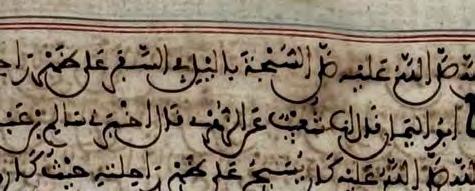 صلى الله عليه صلى السبحة بالليل في السفر على ظهر راحـ
ابو اليمان قال انا شعيب عن الزهري قال اخبرني سالم بن عبد
صلى الله عليه كان يسبح على ظهر راحلته حيث كان